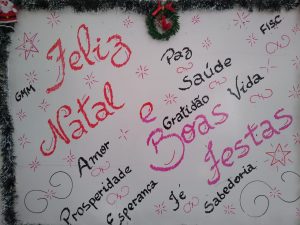 Feliz
Natal
e
Boas
Festas
GMM
FISC
Paz
Saúde
Gratidão
Vida
Amor
Prosperidade
Esperança
Fé
Sabedoria